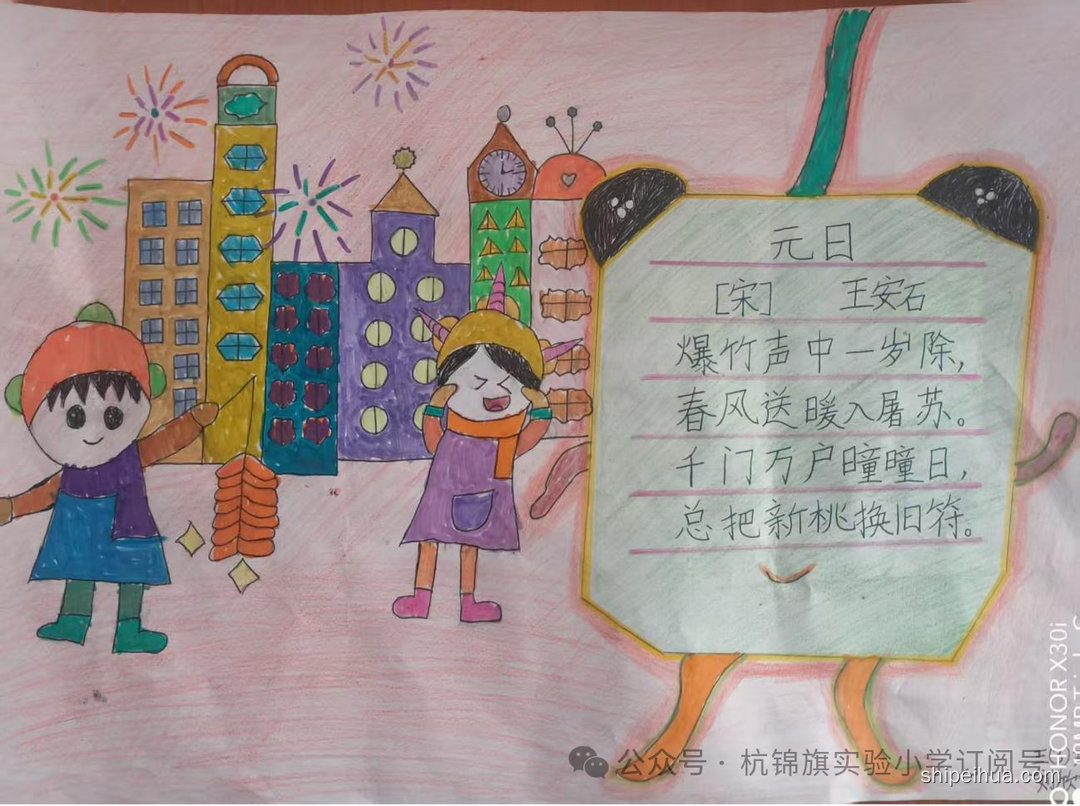 元日
[宋] 王安石
爆竹声中一岁除,
春风送暖入屠苏。
千门万户曈曈日,
总把新桃换旧符。
公众号·杭锦旗实验小学订阅号
shipeihua.com
HONOR X30i